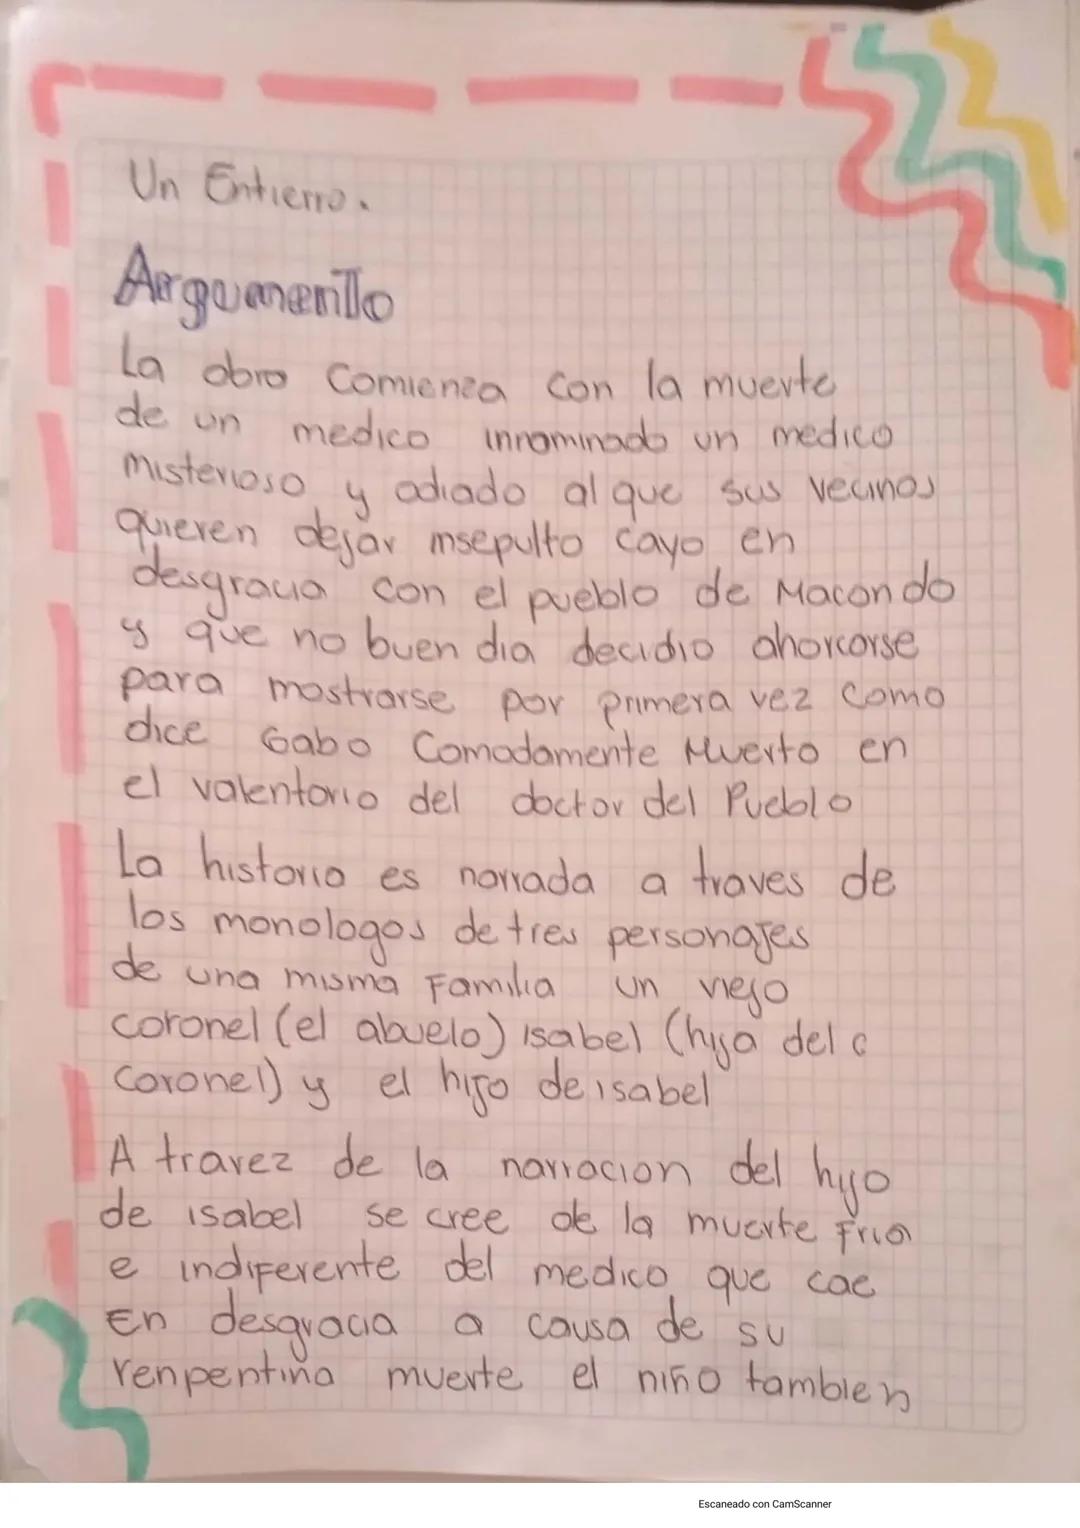 Un Entierro.
Argumento
La obra Comienza con la muerte
de un medico innominado un medico
misterioso y odiado al que sus vecinos
quieren dejar insepulto cayo en
desgracia con el pueblo de Macondo
y que no buen dia decidio ahorcarse
para mostrarse por primera vez como
dice Gabo Comodamente Muerto en
el valentorio del doctor del Pueblo
La historia es narrada a traves de
los monologos de tres personajes
de una misma Familia un viejo
coronel (el abuelo) isabel (hija del c
coronel) y el hijo de isabel
A travez de la narracion del hijo
de isabel se cree de la muerte Fria
e indiferente del medico que cae
En desgracia a causa de su
renpentina muerte el niño tambien
Escaneado con CamScanner